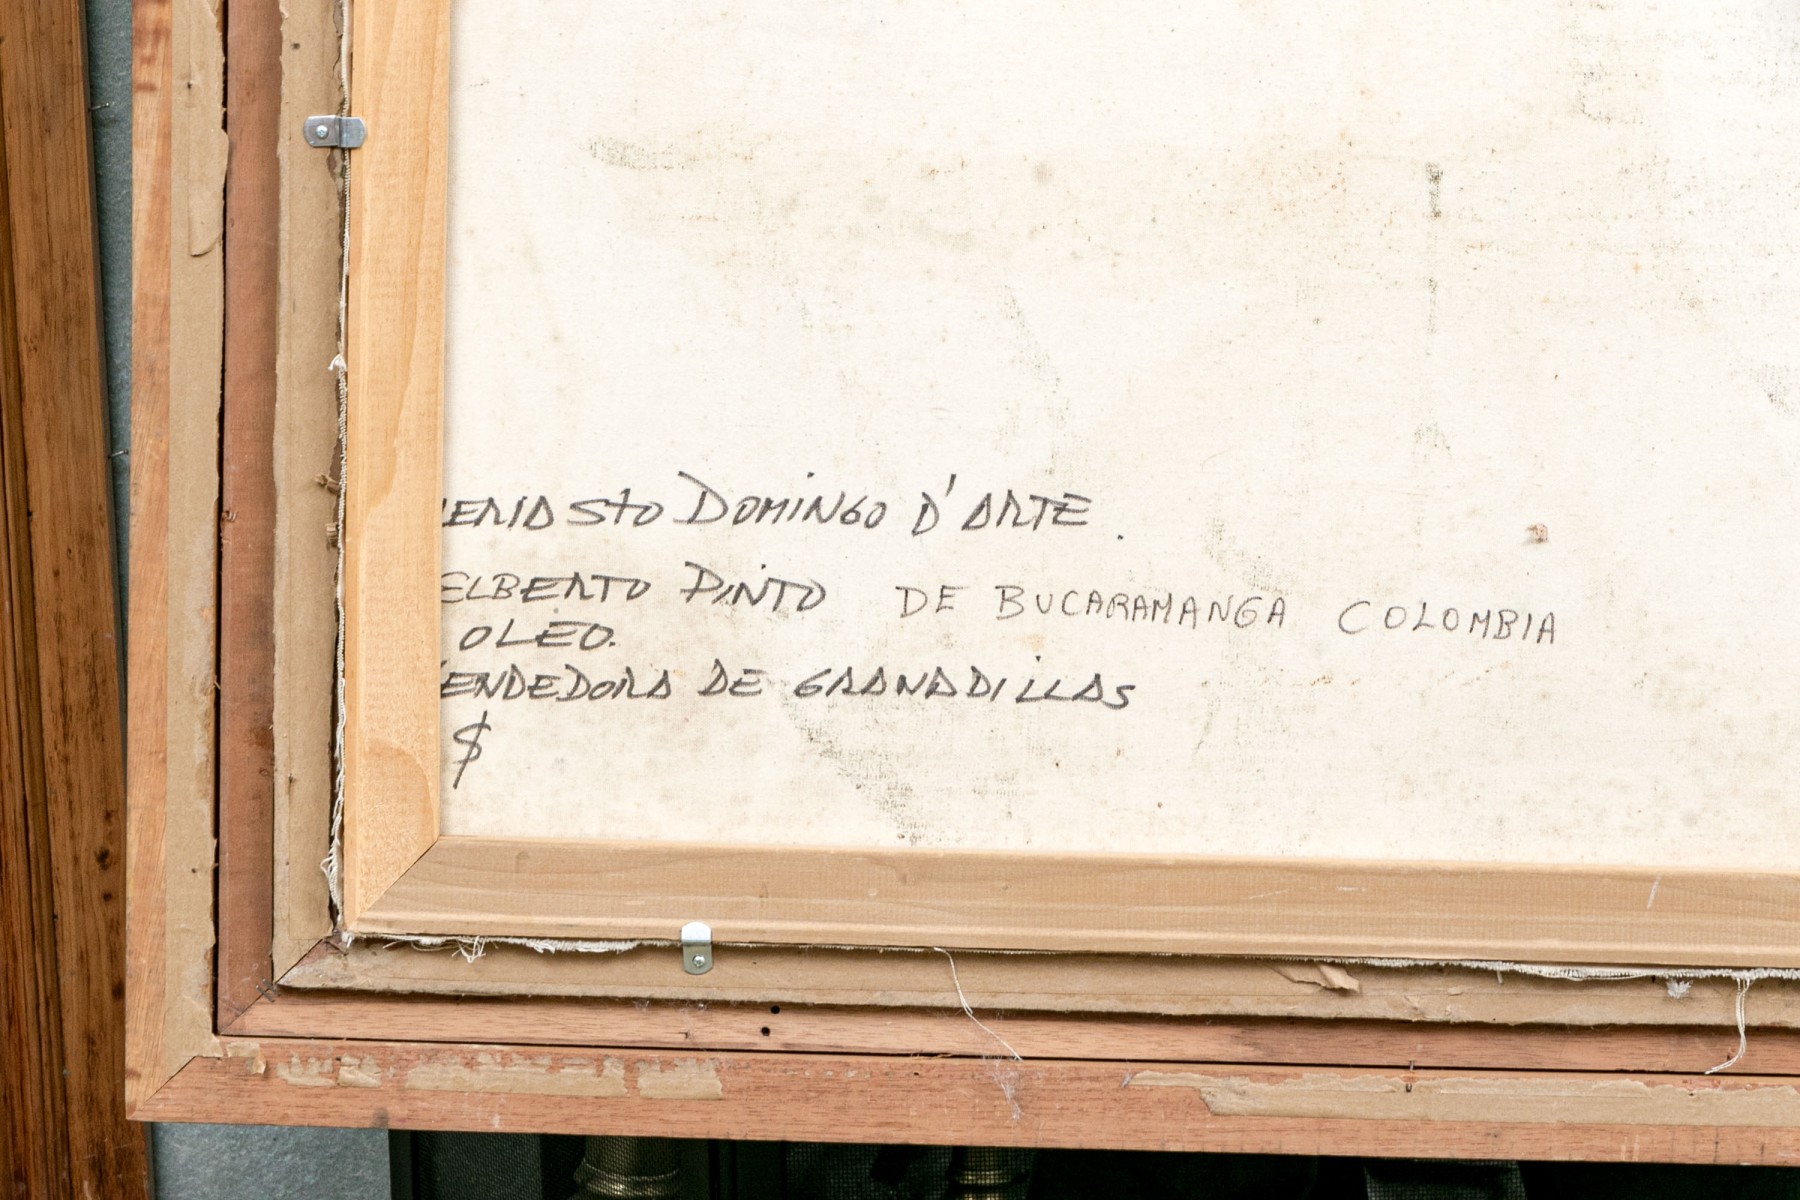 LERIA Sto DOMINGO D'ARTE.
ELBERTO PINTO DE BUCARAMANGA COLOMBIA
OLEO.
VENDEDORA DE GRANADILLAS
$